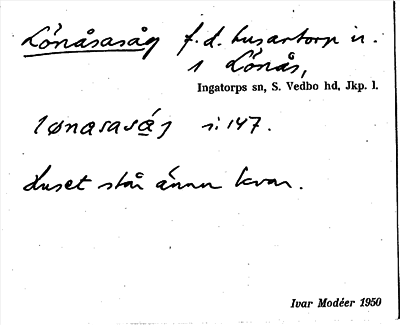 Lönåsasåg f.d. husartorp u.
1 Lönås,
Ingatorps sn, S. Vedbo hd, Jkp. l.
lønasasåg s. 147.
Huset står ännu kvar.
Ivar Modéer 1950